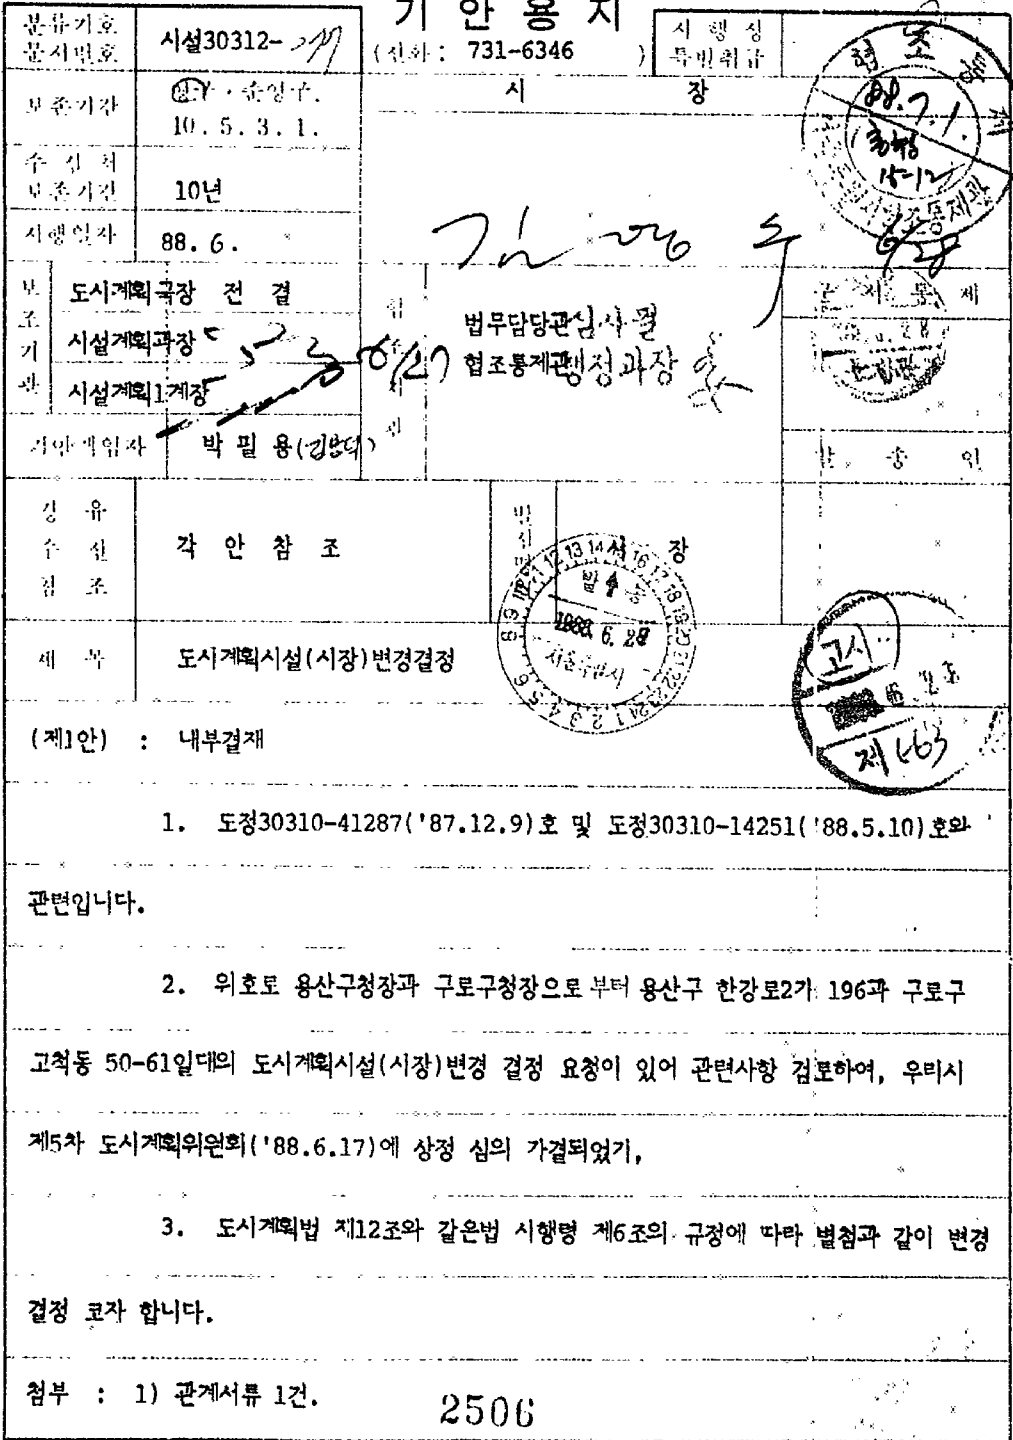 기 안 용 지
분류기호
문서번호
시설30312-
(전화 : 731-6346 )
시 행 상
특별취급
보존기간
영구 · 준영구.
10. 5. 3. 1.
시 장
수 신 처
보존기간
10년
시행일자
88. 6.
보조기관
도시계획국장 전 결
시설계획과장
시설계획1계장
법무담당관 심사필
협조통제관 행정과장
기안책임자
박 필 용
발 송 인
경 유
수 신
참 조
각 안 참 조
시 장
발 송
1988. 6. 28
제 목
도시계획시설(시장)변경결정
고시
(제1안) : 내부결재
1. 도정30310-41287('87.12.9)호 및 도정30310-14251('88.5.10)호와
관련입니다.
2. 위호로 용산구청장과 구로구청장으로 부터 용산구 한강로2가 196과 구로구
고척동 50-61일대의 도시계획시설(시장)변경 결정 요청이 있어 관련사항 검토하여, 우리시
제5차 도시계획위원회('88.6.17)에 상정 심의 가결되었기,
3. 도시계획법 제12조와 같은법 시행령 제6조의 규정에 따라 별첨과 같이 변경
결정 코자 합니다.
첨부 : 1) 관계서류 1건.
2506